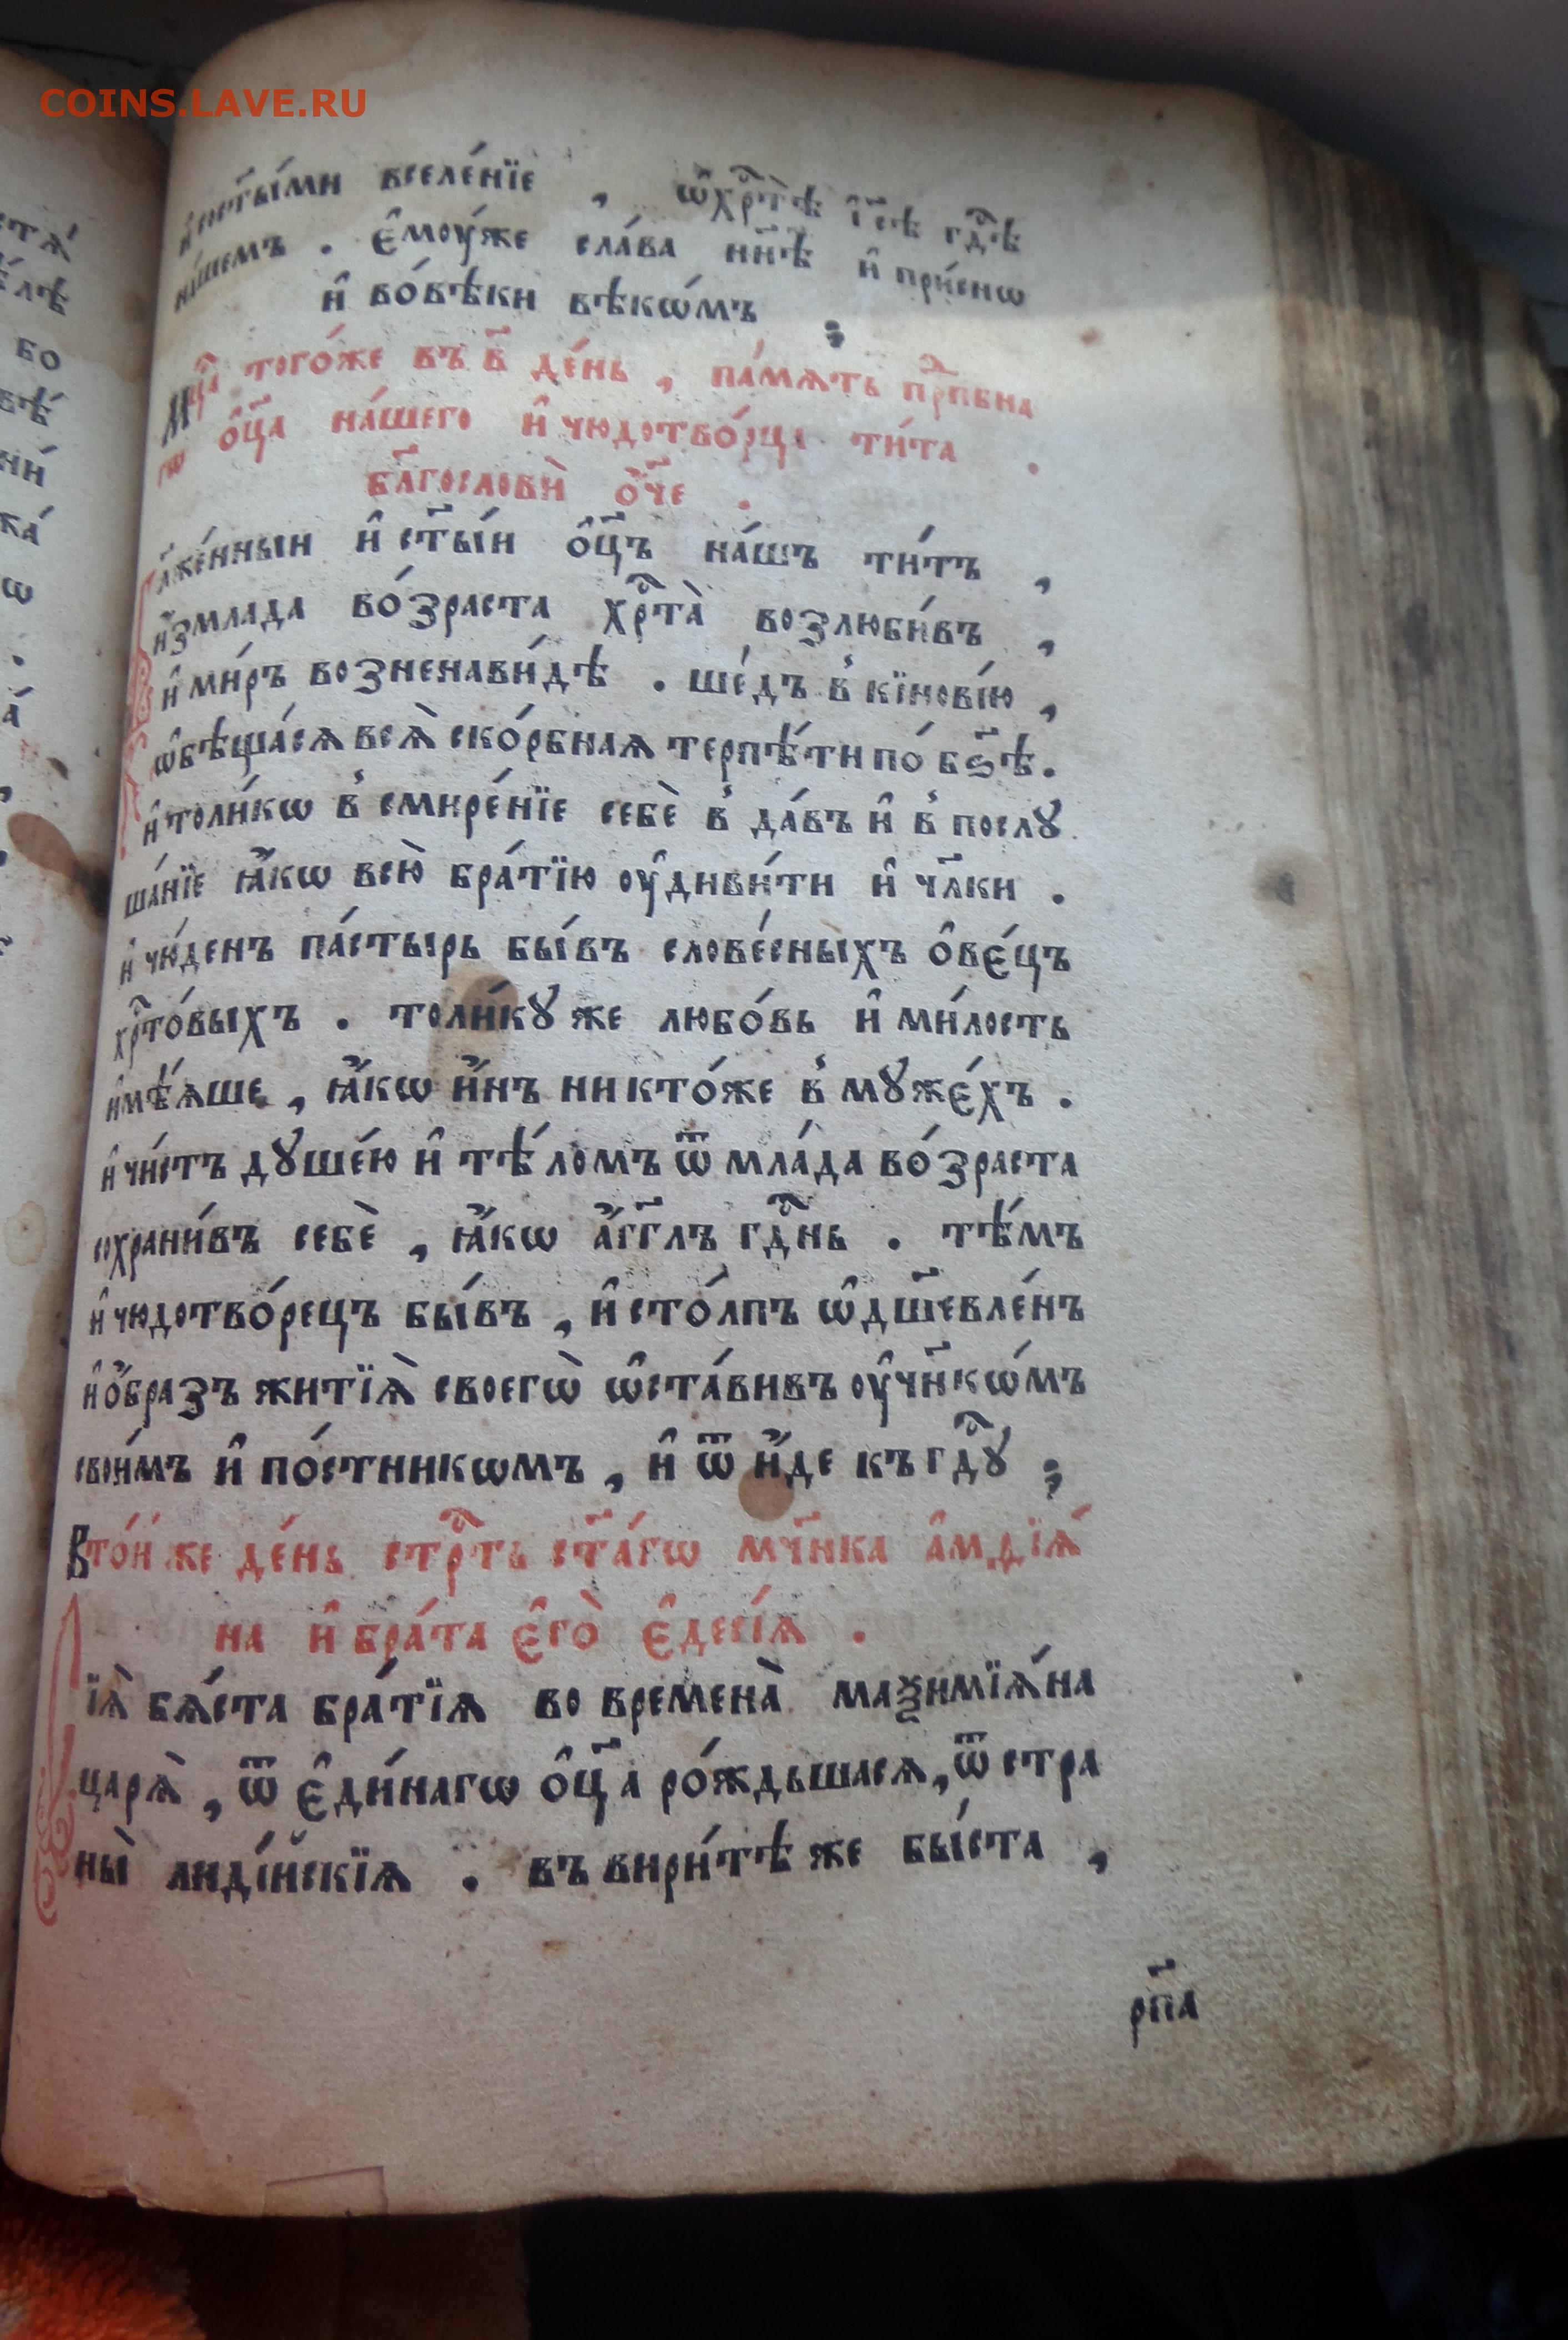 COINS.LAVE.RU
и҆ ст҃ы́ми вселе́нїе , ѡ҆ хрⷭ҇тѣ̀ і҆с҃ѣ гдⷭ҇ѣ
на́шемъ . є҆моу́же сла́ва нн҃ѣ и҆ при́снѡ
и҆ во́вѣки вѣкѡ́мъ ;
Мцⷭ҇а тогѡ́же въ в҃ де́нь , па́мѧть прпⷣбна
гѡ ѻ҆ц҃а на́шего и҆ чюдотво́рца ти́та .
бл҃гословѝ ѻ҆́ч҃е .
л҃же́нныи и҆ ст҃ы́и ѻ҆ц҃ъ на́шъ ти́тъ ,
и҆́змлада во́зраста хрⷭ҇та̀ возлюби́въ ,
и҆ ми́ръ возненави́дѣ . ше́дъ в̾ кїнові́ю ,
ѡ҆бѣща́сѧ всѧ̀ ско́рбнаѧ терпѣ́ти по́ бз҃ѣ .
и҆ толи́кѡ в̾ смире́нїе себѐ в̾ да́въ и҆ в̾ послꙋ
ша́нїе ꙗ҆́кѡ всю̀ бра́тїю оу҆диви́ти и҆ чл҃ки .
и҆ чю́денъ па́стырь бы́въ слове́сныхъ ѻ҆ве́цъ
хрⷭ҇то́выхъ . толи́кꙋ же любо́вь и҆ ми́лость
и҆мѣ́ѧше , ꙗ҆́кѡ и҆́нъ никто́же в̾ мꙋже́хъ .
и҆ чи́стъ дꙋше́ю и҆ тѣ́ломъ ѿ мла́да во́зраста
сохрани́въ себѐ , ꙗ҆́кѡ а҆́гг҃лъ гдⷭ҇нь . тѣ́мъ
и҆ чюдотво́рецъ бы́въ , и҆ сто́лпъ ѡ҆дш҃евле́нъ
и҆ ѻ҆́бразъ житїѧ̀ своегѡ̀ ѡ҆ста́вивъ оу҆чн҃кѡ́мъ
свои́мъ и҆ по́стникѡмъ , и҆ ѿ и҆́де къ гдⷭ҇ꙋ ;
В то́и же де́нь стрⷭ҇ть ст҃а́гѡ мч҃нка а҆мфїѧ́
на и҆ бра́та є҆гѡ̀ є҆десі́ѧ .
їѧ̀ бѧ́ста бра́тїѧ во времена̀ маѯимїѧ́на
царѧ̀ , ѿ є҆ди́нагѡ ѻ҆ц҃а ро́ждьшасѧ , ѿ стра
ны̀ лиді́йскїѧ . въ вири́тѣ же бы́ста ,
рп҃а